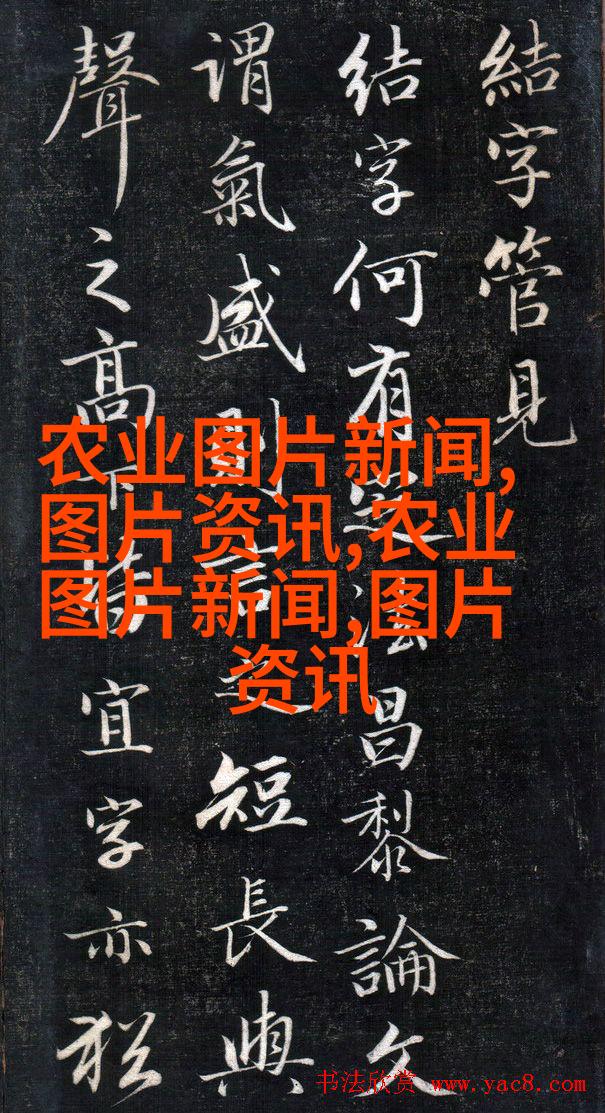 結字管見
结字何有定法昌黎論文
謂氣盛則言之短長與
聲之高下皆宜字亦猶
农业图片新闻,
图片资讯,农业
图片新闻,图片
资讯
书法欣赏 www.yac8.com